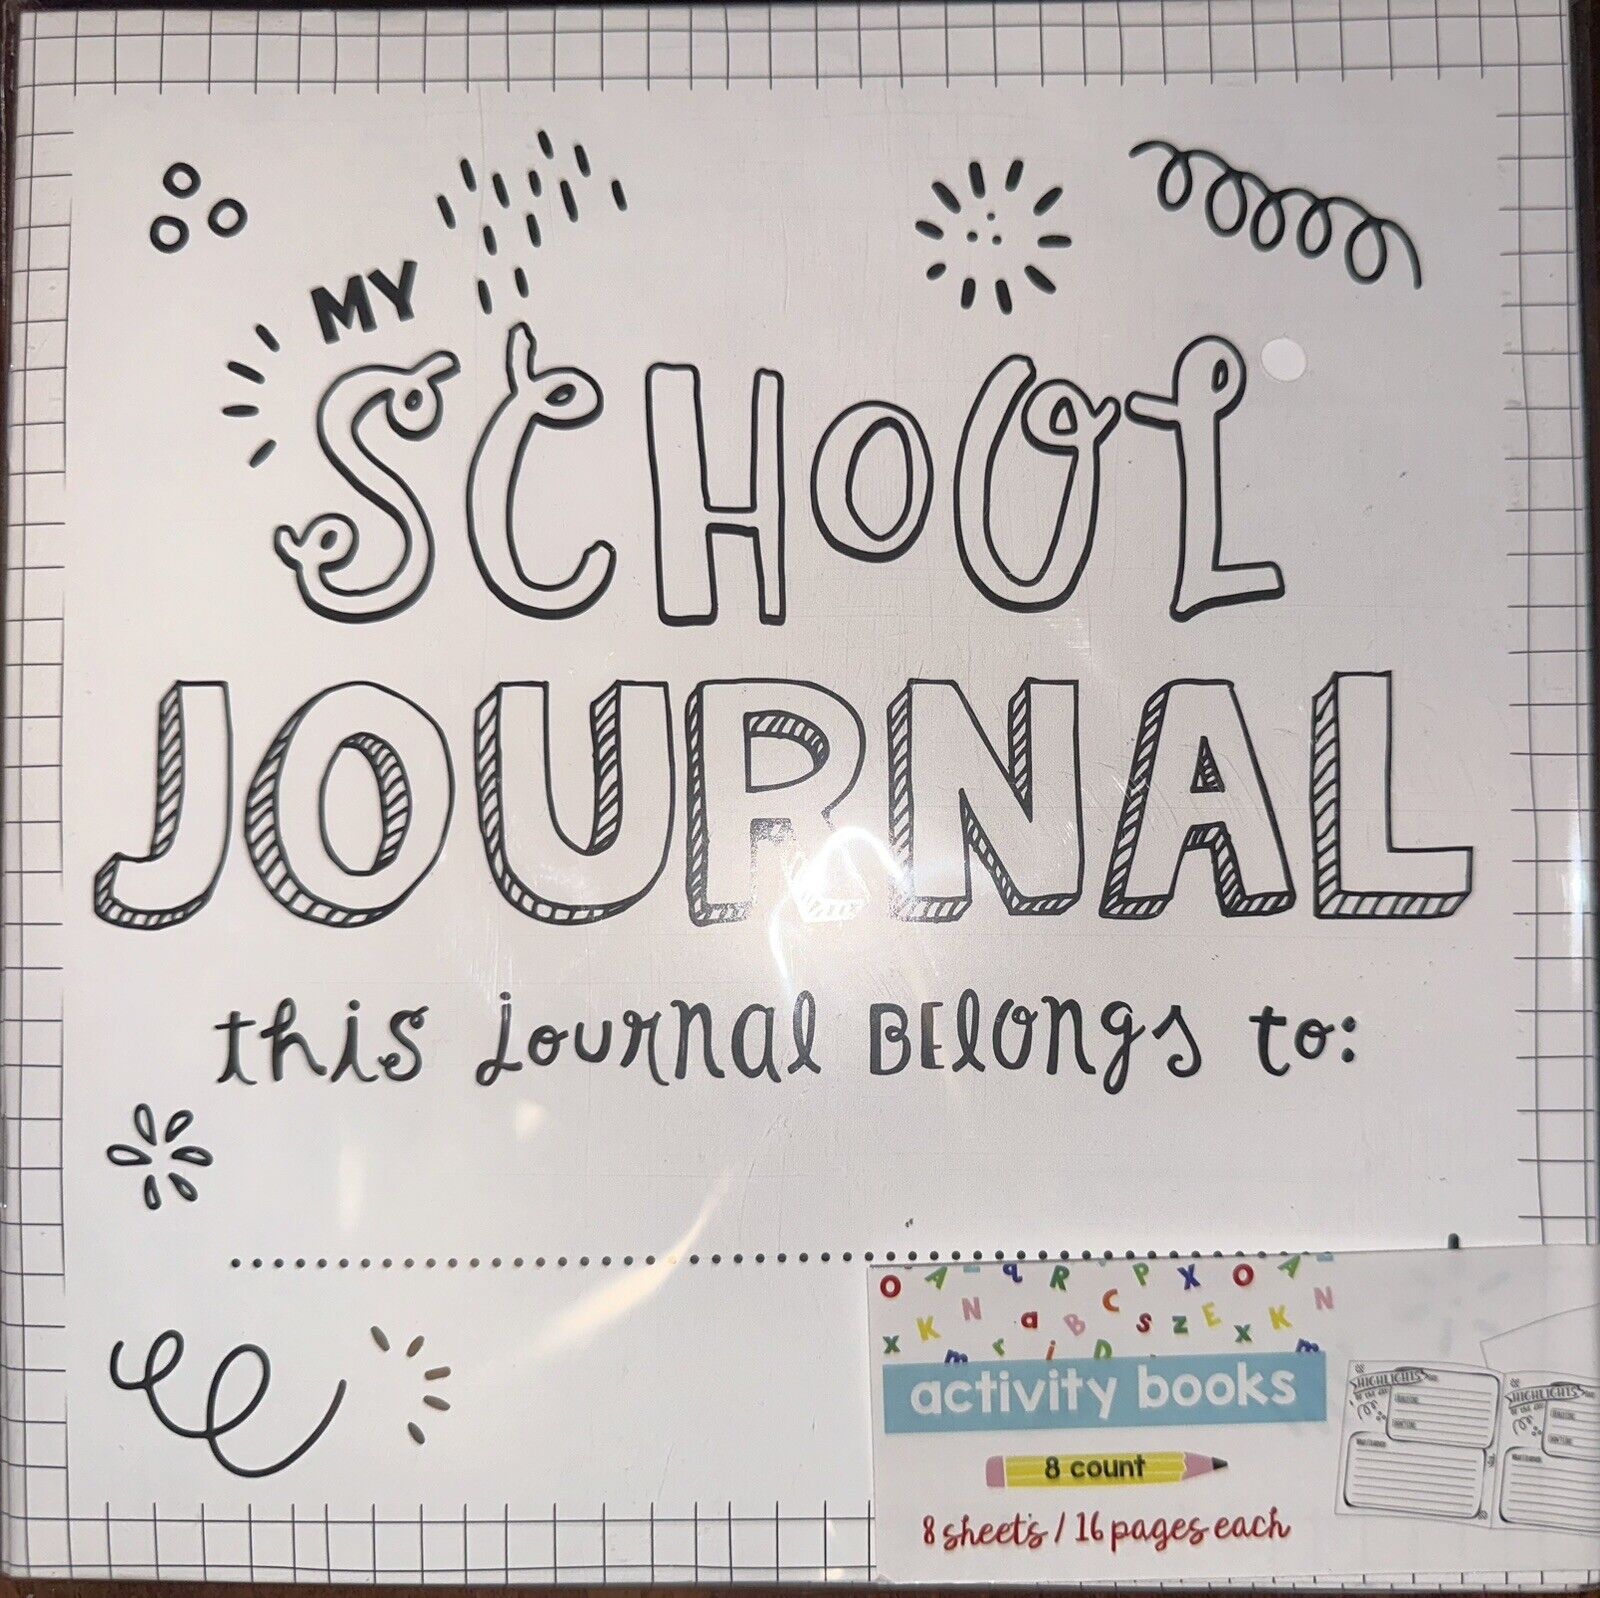 MY
SCHOOL
JOURNAL
this journal BElongs to:
O A q R P X O A
K N a B C s z E x K N
x m r i D m
activity books
8 count
8 sheets / 16 pages each
HIGHLIGHTS
HIGHLIGHTS